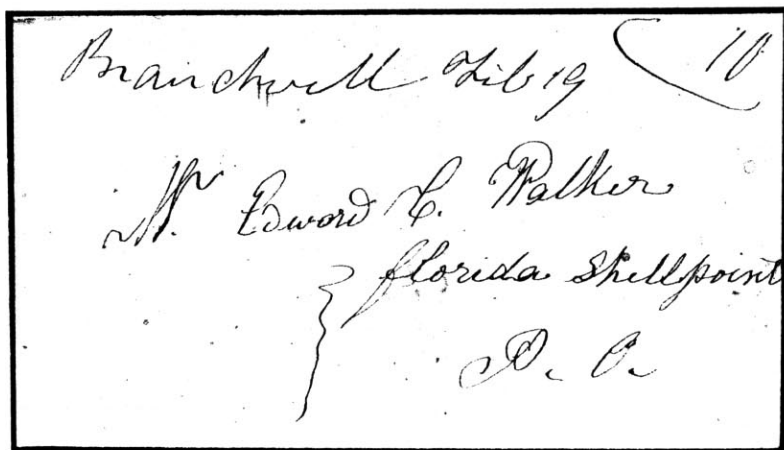 Branchville Feb 19 10
Mr Edward C. Walker
florida Shellpoint
P. O.